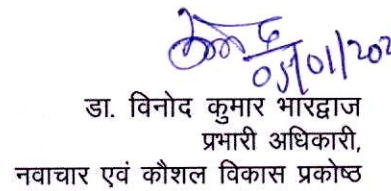 05/01/202
डा. विनोद कुमार भारद्वाज
प्रभारी अधिकारी,
नवाचार एवं कौशल विकास प्रकोष्ठ